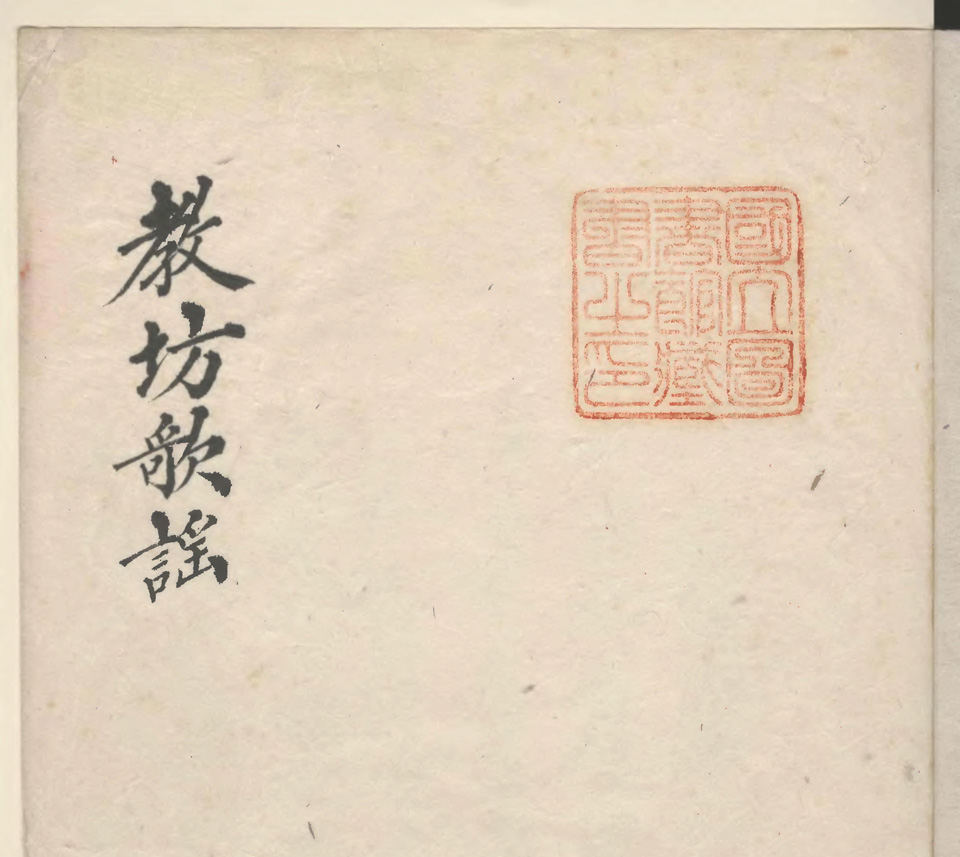 國立圖
書館藏
書之印
教坊歌謠